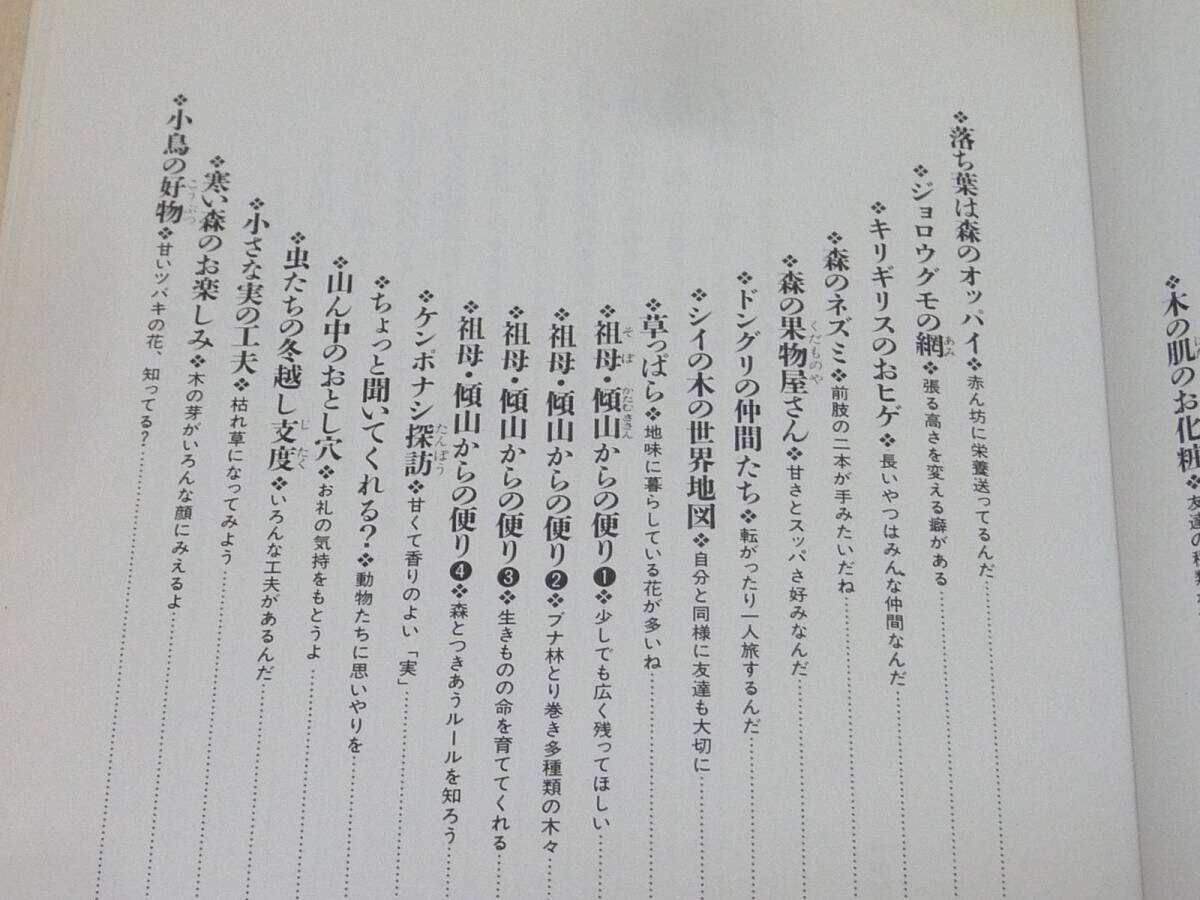 ❖木の肌のお化粧❖友達の種類
❖落ち葉は森のオッパイ❖赤ん坊に栄養送ってるんだ
❖ジョロウグモの網❖張る高さを変える癖がある
❖キリギリスのおヒゲ❖長いやつはみんな仲間なんだ
❖森のネズミ❖前肢の二本が手みたいだね
❖森の果物屋さん❖甘さとスッパさ好みなんだ
❖ドングリの仲間たち❖転がったり一人旅するんだ
❖シイの木の世界地図❖自分と同様に友達も大切に
❖草っぱら❖地味に暮らしている花が多いね
❖祖母・傾山からの便り❶❖少しでも広く残ってほしい
❖祖母・傾山からの便り❷❖ブナ林とり巻き多種類の木々
❖祖母・傾山からの便り❸❖生きものの命を育ててくれる
❖祖母・傾山からの便り❹❖森とつきあうルールを知ろう
❖ケンポナシ探訪❖甘くて香りのよい「実」
❖ちょっと聞いてくれる？❖動物たちに思いやりを
❖山ん中のおとし穴❖お礼の気持をもとうよ
❖虫たちの冬越し支度❖いろんな工夫があるんだ
❖小さな実の工夫❖枯れ草になってみよう
❖寒い森のお楽しみ❖木の芽がいろんな顔にみえるよ
❖小鳥の好物❖甘いツバキの花、知ってる？